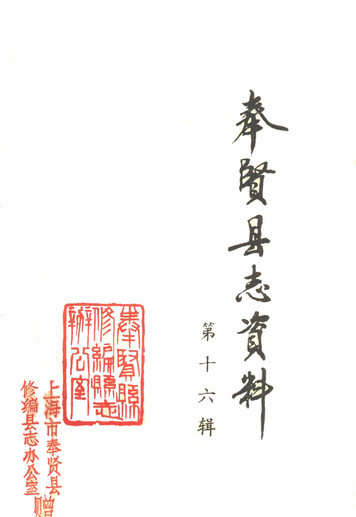 奉贤县志資料
第十六辑
奉賢縣
修編縣志
辦公室
上海市奉贤县
修编县志办公室赠